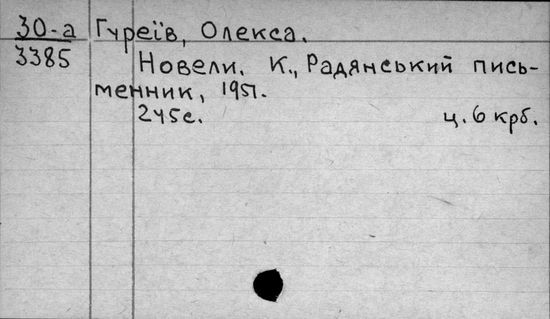 30-а Гуреїв, Олекса.
3385 Новели. К., Радянський пись-
менник, 1951.
245с. ц. 6 крб.